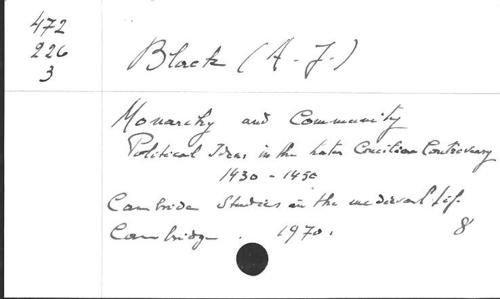 472
226
3
Black (A. J.)
Monarchy and Community
Political Ideas in the Later Conciliar Controversy
1430 - 1450
Cambridge Studies in the medieval Lif.
Cambridge. 1970. 8